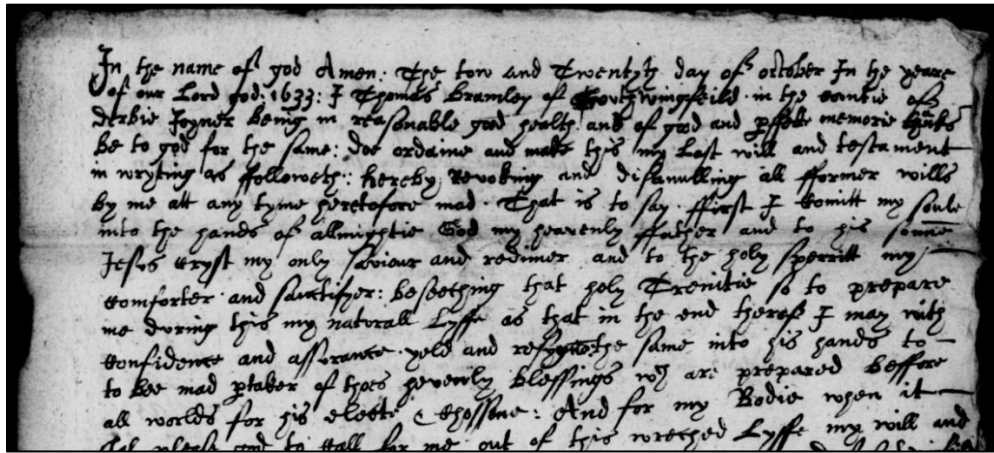 In the name of god Amen: The tow and Twentyth day of october In the yeare
of our Lord god: 1633: I Thomas Bramley of Southwingfeild in the countie of
derbie Joyner being in reasonable good health and of good and pfecte memorie thanks
be to god for the same: doe ordaine and make this my Last will and testament
in wryting as ffolloweth: hereby revoking and disanulling all fformer wills
by me att any tyme heretofore mad. That is to say. ffirst I Comitt my soule
into the hands of allmightie God my heavenly ffather and to his sonne
Jesus Cryst my only saviour and redimer and to the holy sperritt my
Comforter and sanctifyer: beseething that holy Trenitie so to prepare
me during this my naturall Lyffe as that in the end therof I may with
Confidence and assurance yeld and the same into his hands to
to bee mad ptaker of thoes hevenly blessings wch are prepared beffore
all worlds for his electe & Chossene: And for my Bodie when it
please god to Call for me out of this wreched Lyffe my will and